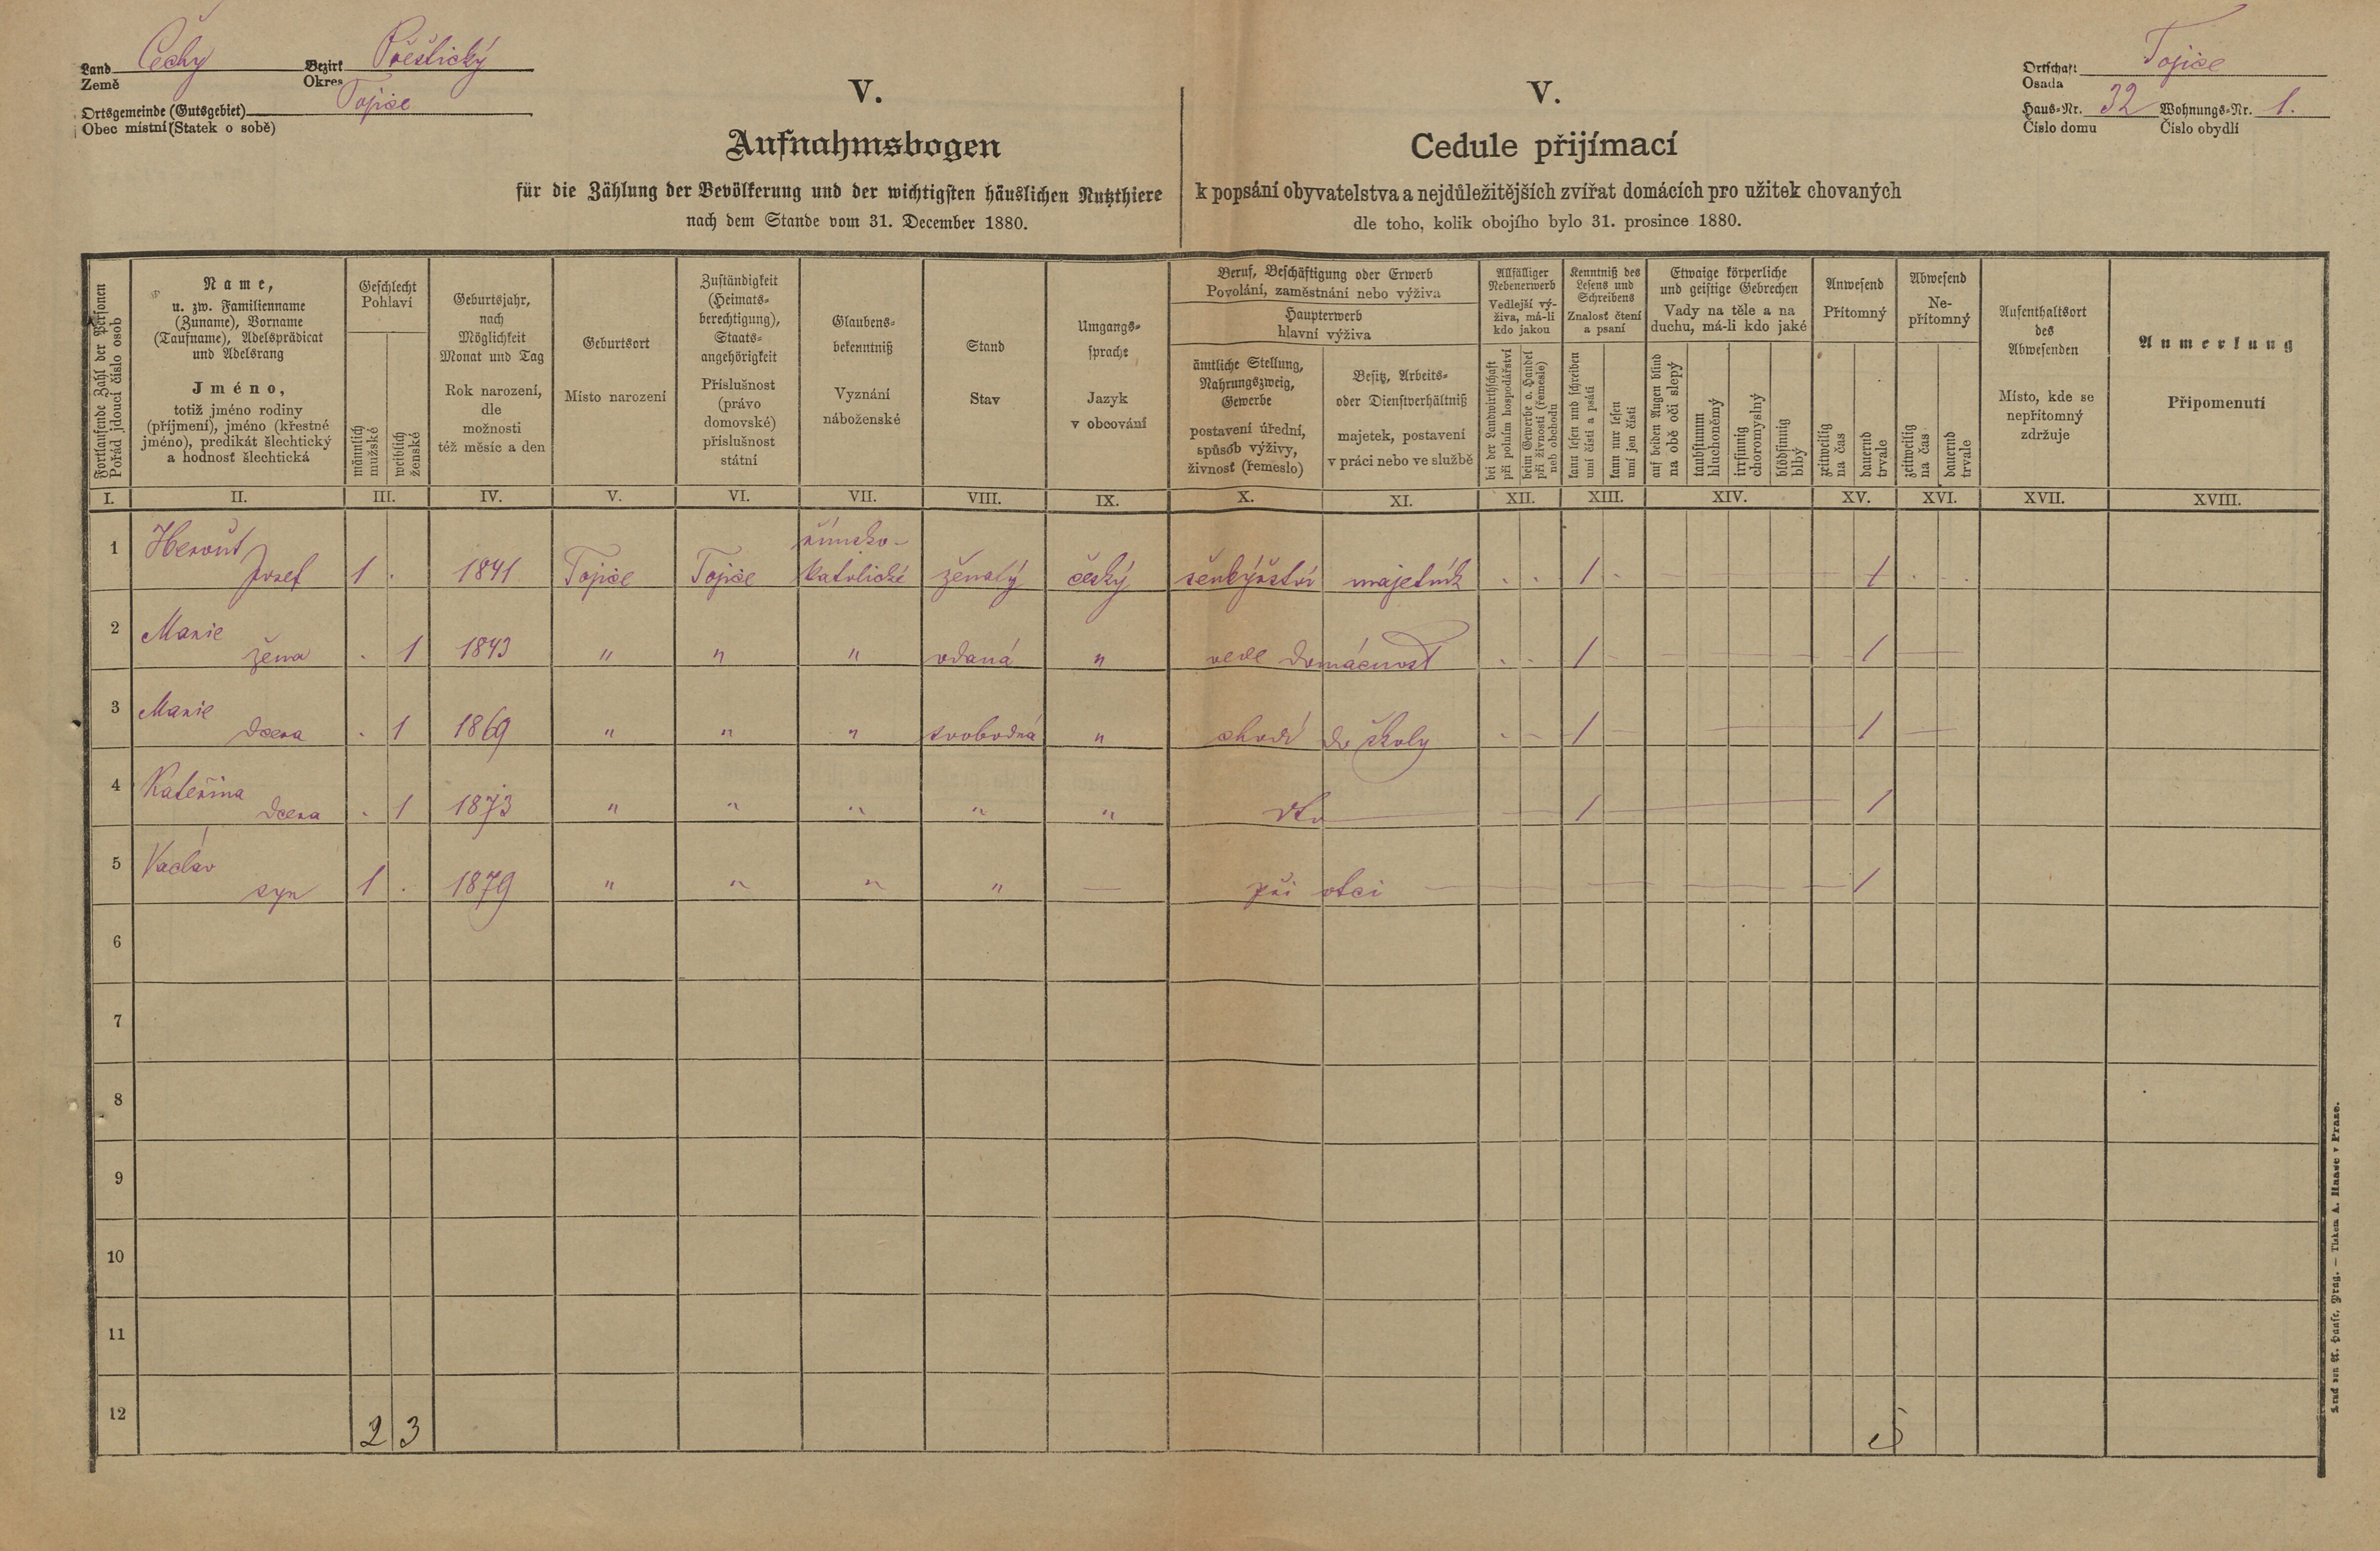 Land Čechy Bezirk Přeštický
Země Okres
Ortsgemeinde (Gutsgebiet) Tojice
Obec místní (Statek o sobě)
Ortschaft Tojice
Osada
Haus-Nr. 32 Wohnungs-Nr. 1.
Číslo domu Číslo obydlí
V.
Aufnahmsbogen
für die Zählung der Bevölkerung und der wichtigsten häuslichen Nutzthiere
nach dem Stande vom 31. December 1880.
V.
Cedule přijímací
k popsání obyvatelstva a nejdůležitějších zvířat domácích pro užitek chovaných
dle toho, kolik obojího bylo 31. prosince 1880.
Fortlaufende Zahl der Personen
Pořád jdoucí číslo osob
Name,
u. zw. Familienname
(Zuname), Vorname
(Taufname), Adelsprädicat
und Adelsrang
Jméno,
totiž jméno rodiny
(příjmení), jméno (křestné
jméno), predikát šlechtický
a hodnosť šlechtická
Geschlecht
Pohlaví
männlich
mužské
weiblich
ženské
Geburtsjahr,
nach
Möglichkeit
Monat und Tag
Rok narození,
dle
možnosti
též měsíc a den
Geburtsort
Místo narození
Zuständigkeit
(Heimats-
berechtigung),
Staats-
angehörigkeit
Příslušnost
(právo
domovské)
příslušnost
státní
Glaubens-
bekenntniß
Vyznání
náboženské
Stand
Stav
Umgangs-
sprache
Jazyk
v obcování
Beruf, Beschäftigung oder Erwerb
Povolání, zaměstnání nebo výživa
Haupterwerb
hlavní výživa
ämtliche Stellung,
Nahrungszweig,
Gewerbe
postavení úřední,
spůsob výživy,
živnosť (řemeslo)
Besitz, Arbeits-
oder Dienstverhältniß
majetek, postavení
v práci nebo ve službě
Allfälliger
Nebenerwerb
Vedlejší vý-
živa, má-li
kdo jakou
bei der Landwirthschaft
při polním hospodářství
beim Gewerbe o. Handel
při živnosti (řemesle)
neb obchodu
Kenntniß des
Lesens und
Schreibens
Znalosť čtení
a psaní
kann lesen und schreiben
umí čísti a psáti
kann nur lesen
umí jen čísti
Etwaige körperliche
und geistige Gebrechen
Vady na těle a na
duchu, má-li kdo jaké
auf beiden Augen blind
na obě oči slepý
taubstumm
hluchoněmý
irrsinnig
choromyslný
blödsinnig
blbý
Anwesend
Přítomný
zeitweilig
na čas
dauernd
trvale
Abwesend
Ne-
přítomný
zeitweilig
na čas
dauernd
trvale
Aufenthaltsort
des
Abwesenden
Místo, kde se
nepřítomný
zdržuje
Anmerkung
Připomenutí
I. II. III. IV. V. VI. VII. VIII. IX. X. XI. XII. XIII. XIV. XV. XVI. XVII. XVIII.
1 Herout římsko-
Josef 1 . 1841 Tojice Tojice katolické ženatý český šenkýřství majetník . . 1 . 1 . .
2 Marie
žena . 1 1843 " " " vdaná " vede domácnost . . 1 1
3 Marie
dcera . 1 1869 " " " svobodná " chodí do školy . 1 1
4 Kateřina
dcera . 1 1873 " " " " " dto 1 1
5 Václav
syn 1 . 1879 " " " " — při otci 1
6
7
8
9
10
11
12
2 3 5
Druck von A. Haase, Prag. — Tiskem A. Haase v Praze.